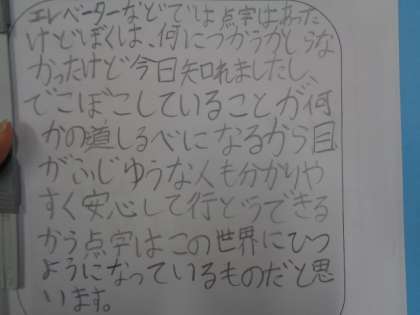 エレベーターなどでは点字はあった
けどぼくは、何につかうかしらな
かったけど今日知れましたし、
でこぼこしていることが何
かの道しるべになるから目
がふじゆうな人も分かりや
すく安心して行どうできる
から点字はこの世界にひつ
ようになっているものだと思
います。